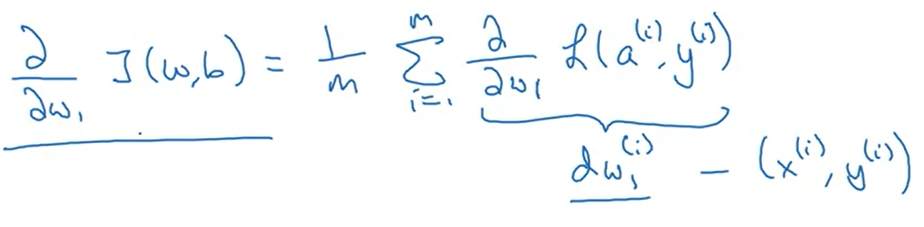 ∂/∂w₁ J(w,b) = 1/m ∑ᵢ₌₁ᵐ ∂/∂w₁ ℒ(a⁽ⁱ⁾, y⁽ⁱ⁾)
dw₁⁽ⁱ⁾ – (x⁽ⁱ⁾, y⁽ⁱ⁾)